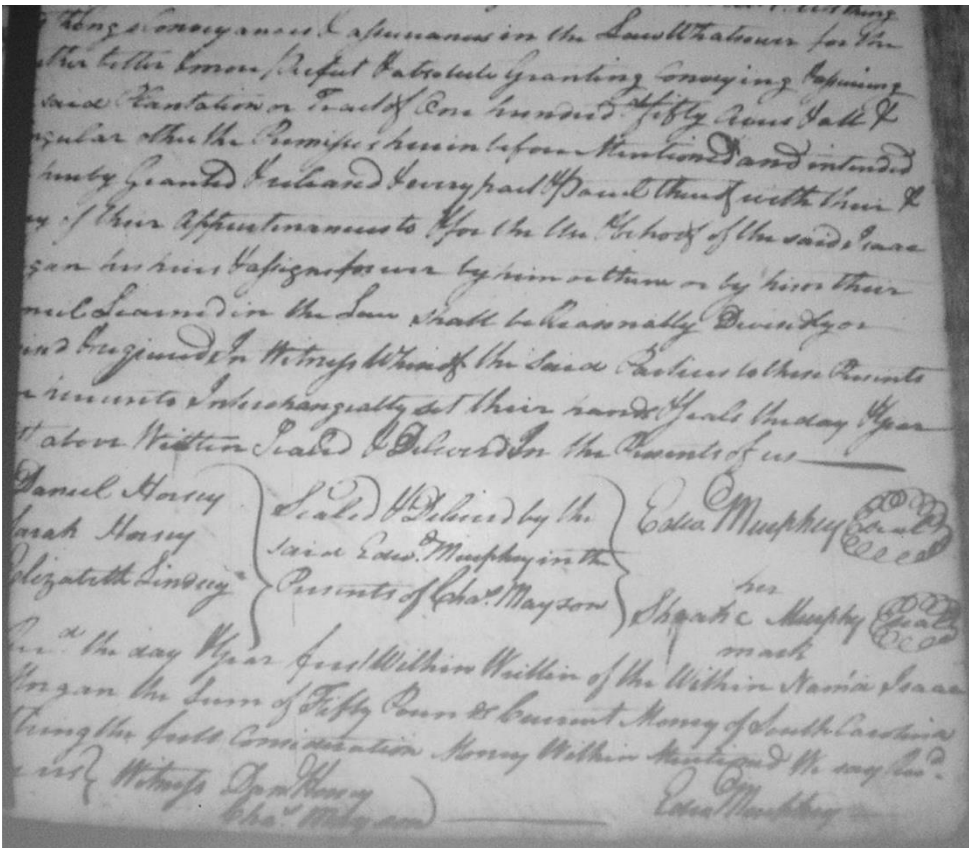 things Conveyances & assurances in the Law Whatsoever for the
better & more perfect & absolute Granting Conveying & assuring
said Plantation or Tract of One hundred & fifty Acres & all &
other the Premises herein before Mentioned and intended
hereby Granted & released & every part & Parcel thereof with their &
of their Appurtenances to & for the Use & behoof of the said Isaac
his heirs & assigns forever by him or them or by his or their
Learned in the Law shall be Reasonably Devised, or
& required, In Witness Whereof the said Parties to these Presents
Interchangeably set their hands & Seals the day & Year
above Written Sealed & Delivered In the Presents of us
Daniel Horsey
Sarah Horsey
Elizabeth Lindsey
Sealed & Delivered by the
said Edwd. Murphey in the
Presents of Chas. Mayson
Edwd. Murphey Seal
her
Murphy Seal
mark
the day & Year first Within Written of the Within Nam'd Isaac
Morgan the Sum of Fifty Pounds Current Money of South Carolina
being the full Consideration Money Within Mentioned We say Recd.
Witness Danl. Horsey
Chas. Mayson
Edwd. Murphey